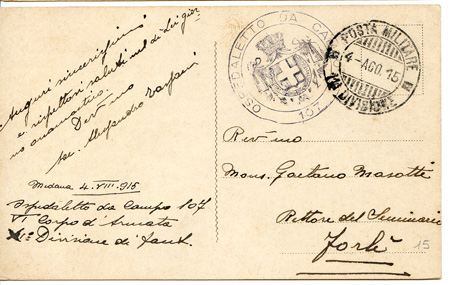 Auguri sincerissimi
e rispettosi saluti nel dì Lei gior-
no onomastico.
Dev.mo
Alessandro
Medana 4.VIII.915
Ospedaletto da Campo 107
VI Corpo d'Armata
Divisione di Fant.
OSPEDALETTO DA CAMPO
107
POSTA MILITARE
4-AGO.15
DIVISIONE
Rev.mo
Mons. Gaetano Masotti
Rettore del Seminario
Forlì
15